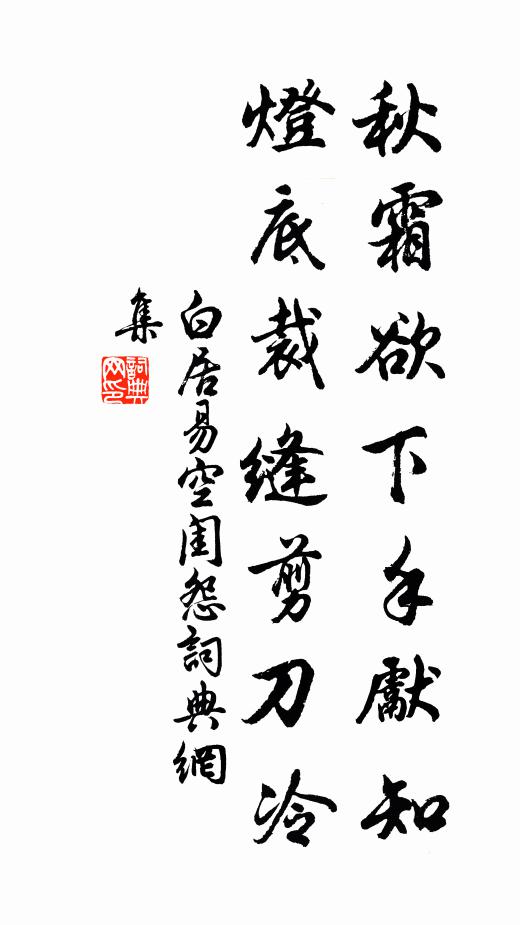 秋霜欲下手獻知
燈底裁縫剪刀冷
白居易空閨怨詞典網
集
詞典
网印